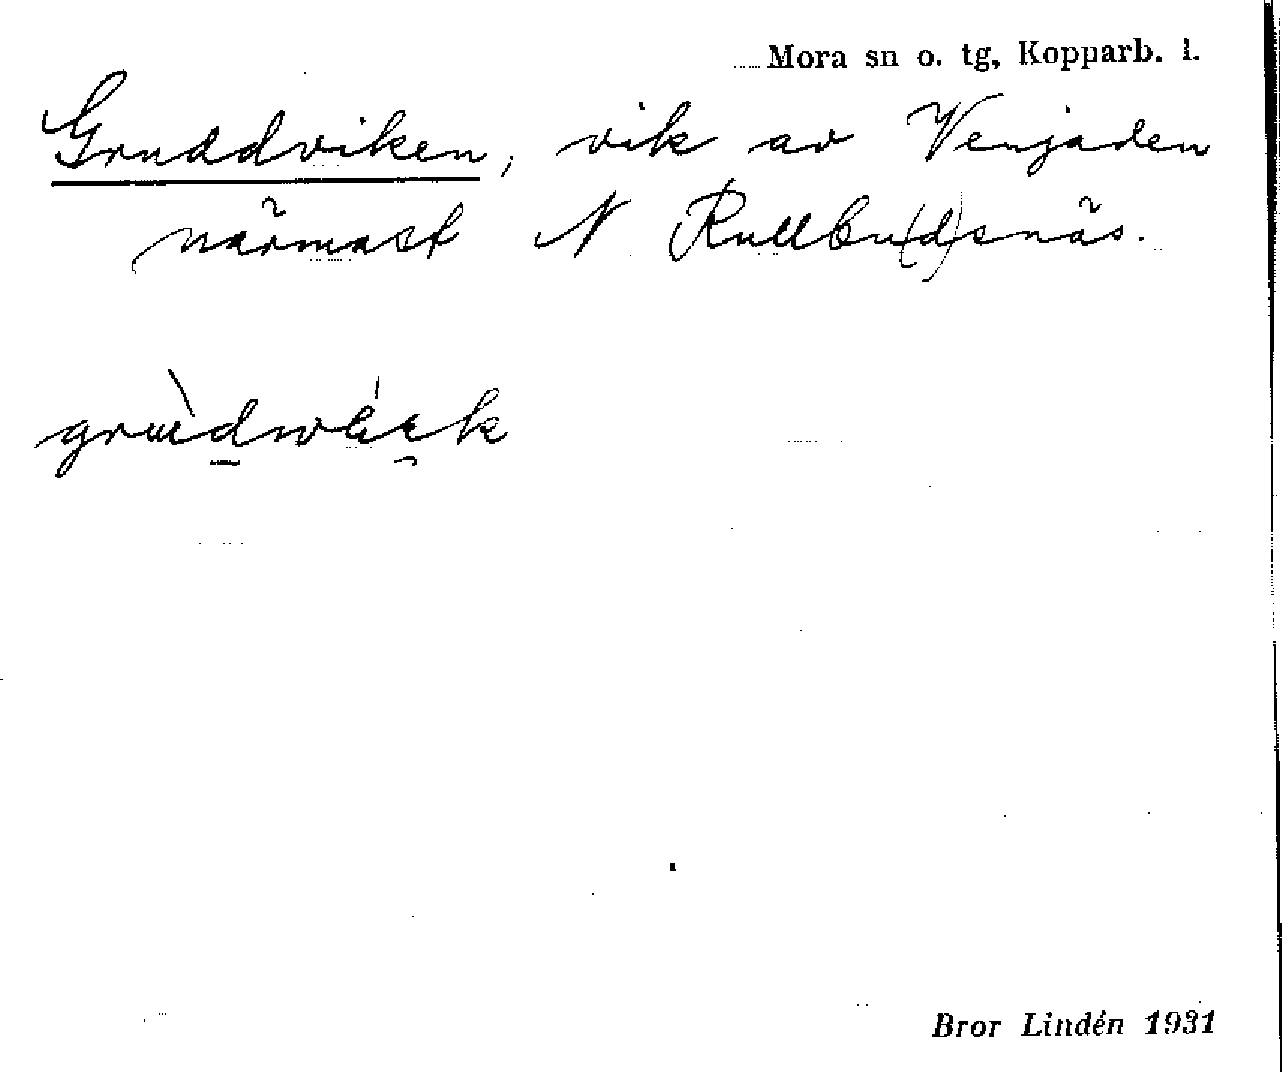 Mora sn o. tg, Kopparb. l.
Gruddviken, vik av Venjaden
närmast N Rullbu(d)snäs.
Bror Lindén 1931